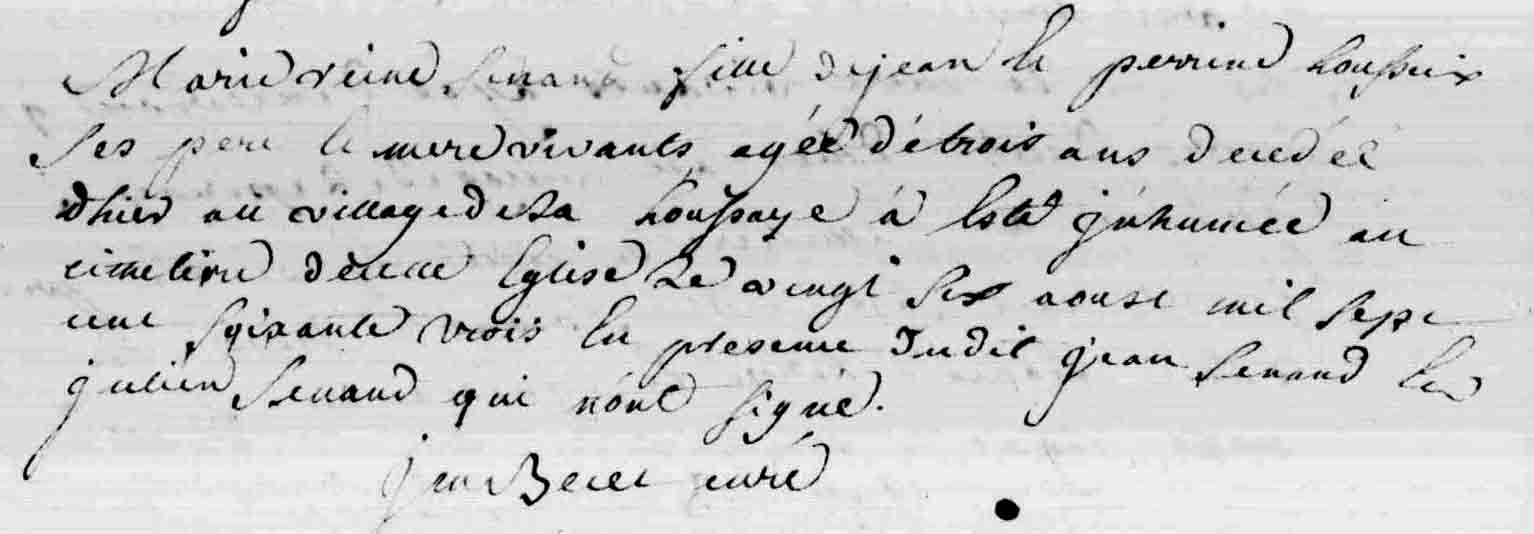 Marie reine Senand fille de jean Et perrine houssaix
Ses pere Et mere vivants agée dé trois ans decedéé
d'hier au village de La houssaye á Esté jnhumée au
cimetiere de cette Eglise Le vingt Six aoust mil Sept
cent Soixante trois En presence dudit jean Senand Et
julien Senand qui nónt signé.
jean curé